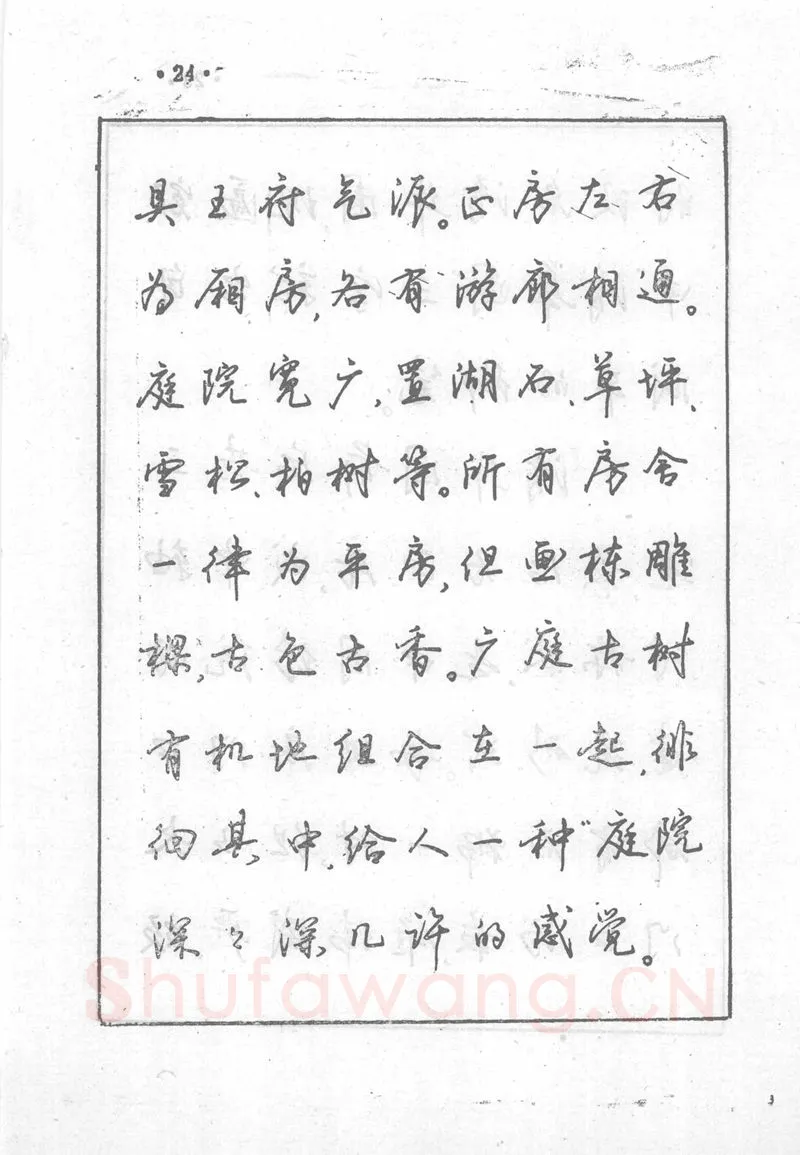 ·24·
具王府气派。正房左右
为厢房,各有游廊相通。
庭院宽广,置湖石、草坪、
雪松、柏树等。所有房舍
一律为平房,但画栋雕
樑,古色古香。广庭古树
有机地组合在一起,徘
徊其中,给人一种“庭院
深々深几许的感觉。
Shufawang.CN